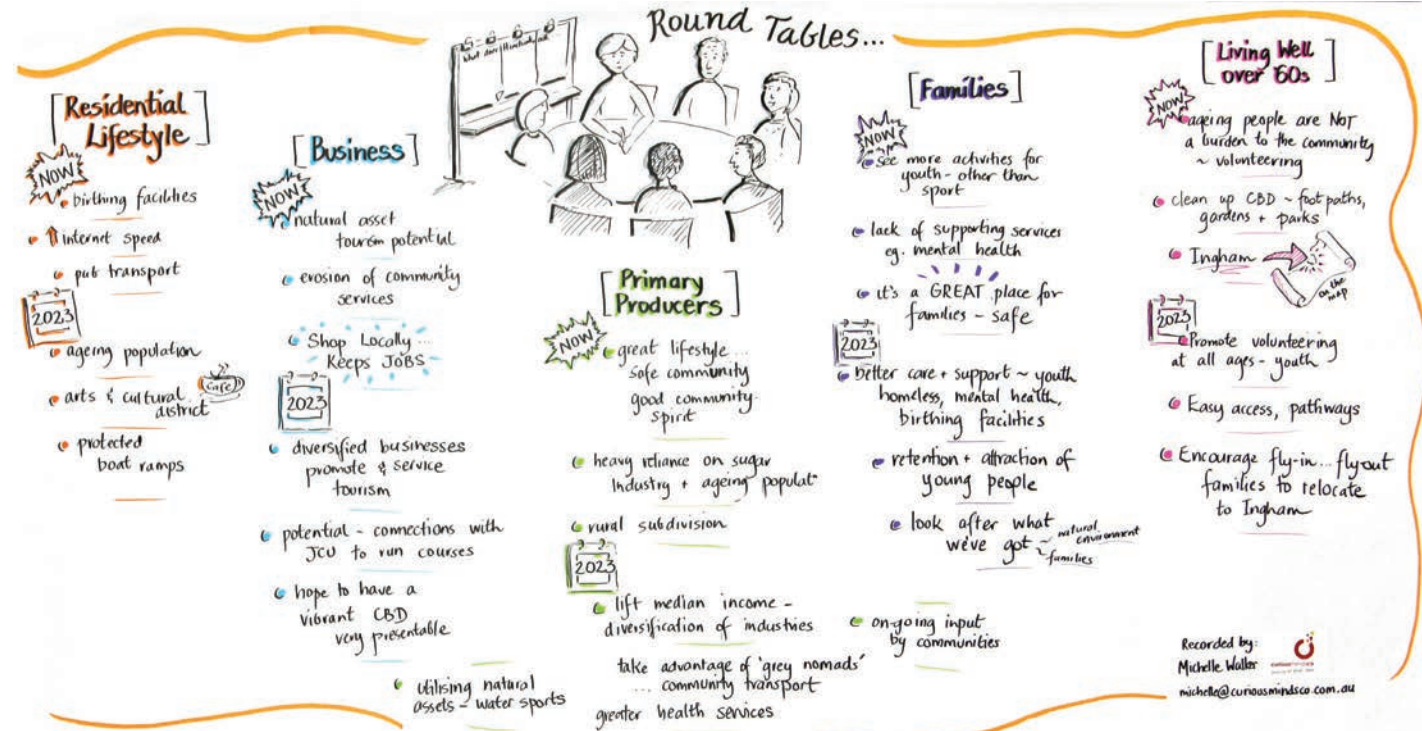 Round Tables...
[Residential
Lifestyle]
NOW
birthing facilities
⇑ Internet speed
pub transport
2023
ageing population
arts & cultural
district
Cafe
protected
boat ramps
[Business]
NOW
natural asset
tourism potential
erosion of community
services
Shop Locally ...
Keeps JOBS
2023
diversified businesses
promote & service
tourism
potential - connections with
JCU to run courses
hope to have a
vibrant CBD
very presentable
[Primary
Producers]
NOW
great lifestyle ...
safe community
good community
spirit
heavy reliance on sugar
Industry + ageing populat'
rural subdivision
2023
lift median income -
diversification of industries
take advantage of 'grey nomads'
... community transport
greater health services
utilising natural
assets - water sports
on-going input
by communities
[Families]
NOW
see more activities for
youth - other than
sport
lack of supporting services
eg. mental health
it's a GREAT place for
families - safe
2023
better care + support ~ youth
homeless, mental health,
birthing facilities
retention + attraction of
young people
look after what
we've got ~ natural
environment
~ families
[Living Well
over '60s]
NOW
ageing people are NOT
a burden to the community
~ volunteering
clean up CBD ~ foot paths,
gardens + parks
Ingham
on the
map
2023
Promote volunteering
at all ages - youth
Easy access, pathways
Encourage fly-in... fly out
families to relocate
to Ingham
Recorded by:
Michelle Walker
michelle@curiousmindsco.com.au